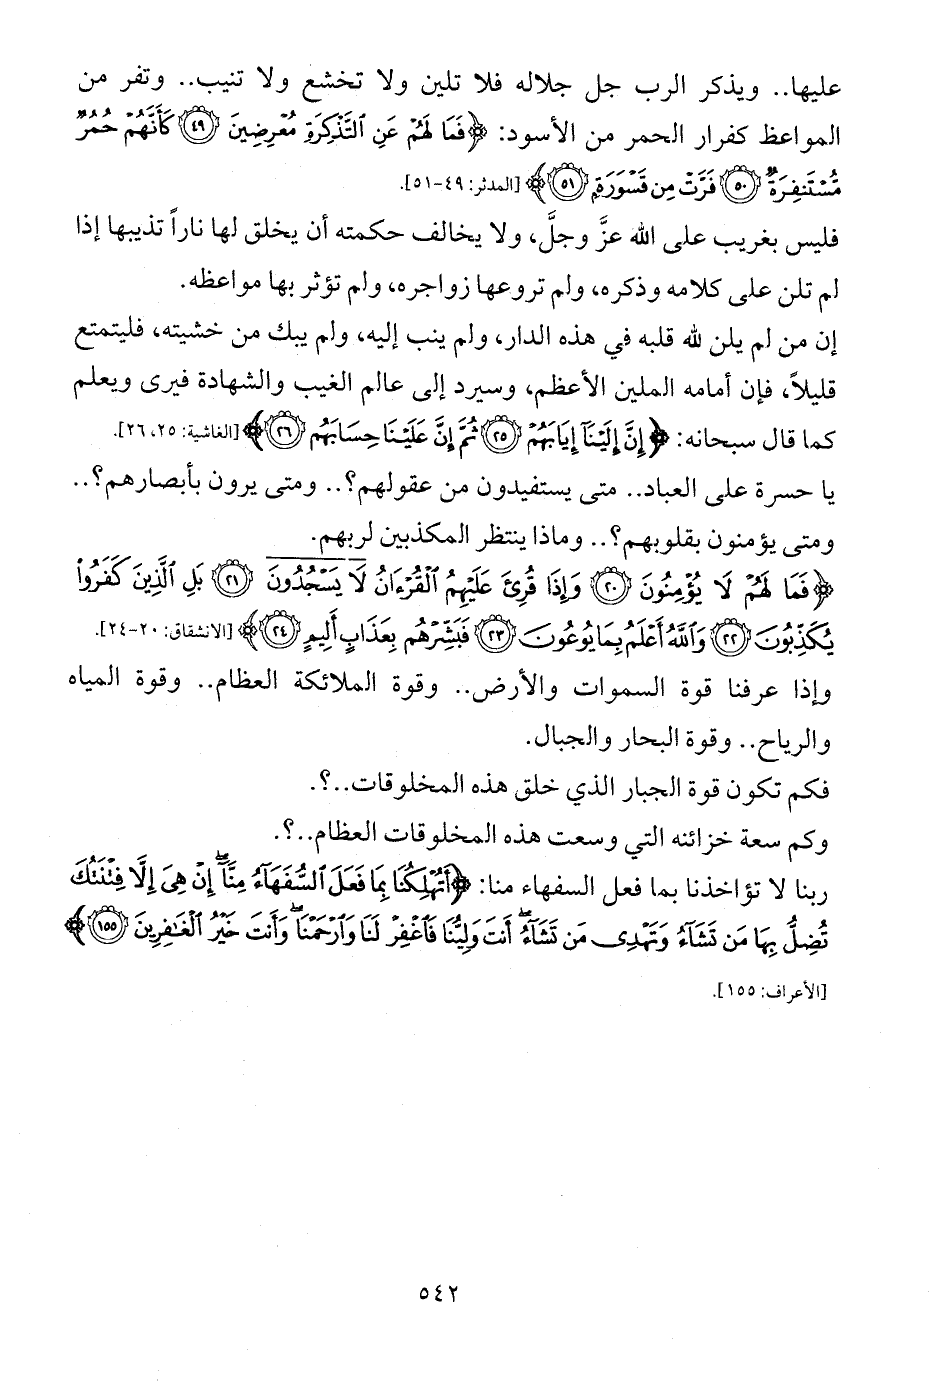 عليها.. ويذكر الرب جل جلاله فلا تلين ولا تخشع ولا تنيب.. وتفر من
المواعظ كفرار الحمر من الأسود: ﴿فَمَا لَهُمْ عَنِ ٱلتَّذْكِرَةِ مُعْرِضِينَ ٤٩ كَأَنَّهُمْ حُمُرٌ
مُّسْتَنفِرَةٌ ٥٠ فَرَّتْ مِن قَسْوَرَةٍ ٥١﴾ [المدثر: ٤٩-٥١].
فليس بغريب على الله عزَّ وجلَّ، ولا يخالف حكمته أن يخلق لها ناراً تذيبها إذا
لم تلن على كلامه وذكره، ولم تروعها زواجره، ولم تؤثر بها مواعظه.
إن من لم يلن لله قلبه في هذه الدار، ولم ينب إليه، ولم يبك من خشيته، فليتمتع
قليلاً، فإن أمامه الملين الأعظم، وسيرد إلى عالم الغيب والشهادة فيرى ويعلم
كما قال سبحانه: ﴿إِنَّ إِلَيْنَآ إِيَابَهُمْ ٢٥ ثُمَّ إِنَّ عَلَيْنَا حِسَابَهُم ٢٦﴾ [الغاشية: ٢٥، ٢٦].
يا حسرة على العباد.. متى يستفيدون من عقولهم؟.. ومتى يرون بأبصارهم؟..
ومتى يؤمنون بقلوبهم؟.. وماذا ينتظر المكذبين لربهم.
﴿فَمَا لَهُمْ لَا يُؤْمِنُونَ ٢٠ وَإِذَا قُرِئَ عَلَيْهِمُ ٱلْقُرْءَانُ لَا يَسْجُدُونَ ٢١ بَلِ ٱلَّذِينَ كَفَرُوا۟
يُكَذِّبُونَ ٢٢ وَٱللَّهُ أَعْلَمُ بِمَا يُوعُونَ ٢٣ فَبَشِّرْهُم بِعَذَابٍ أَلِيمٍ ٢٤﴾ [الانشقاق: ٢٠-٢٤].
وإذا عرفنا قوة السموات والأرض.. وقوة الملائكة العظام.. وقوة المياه
والرياح.. وقوة البحار والجبال.
فكم تكون قوة الجبار الذي خلق هذه المخلوقات..؟.
وكم سعة خزائنه التي وسعت هذه المخلوقات العظام..؟.
ربنا لا تؤاخذنا بما فعل السفهاء منا: ﴿أَتُهْلِكُنَا بِمَا فَعَلَ ٱلسُّفَهَآءُ مِنَّآ إِنْ هِىَ إِلَّا فِتْنَتُكَ
تُضِلُّ بِهَا مَن تَشَآءُ وَتَهْدِى مَن تَشَآءُ أَنتَ وَلِيُّنَا فَٱغْفِرْ لَنَا وَٱرْحَمْنَا وَأَنتَ خَيْرُ ٱلْغَٰفِرِينَ ١٥٥﴾
[الأعراف: ١٥٥].
٥٤٢